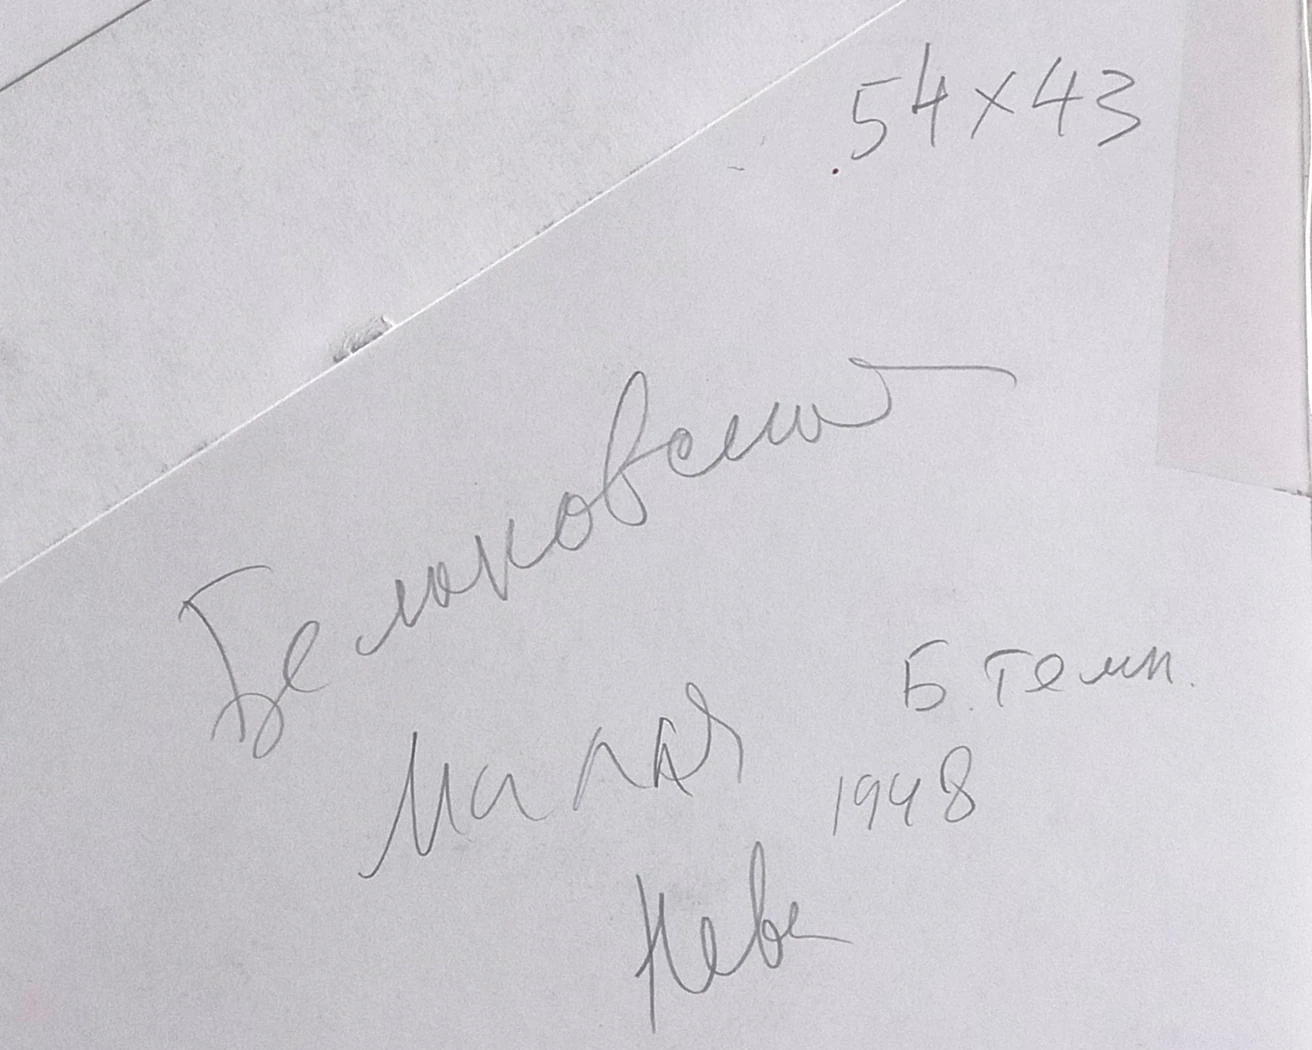 54×43
Белаковская
Малая
Б. темп.
1948
Нева